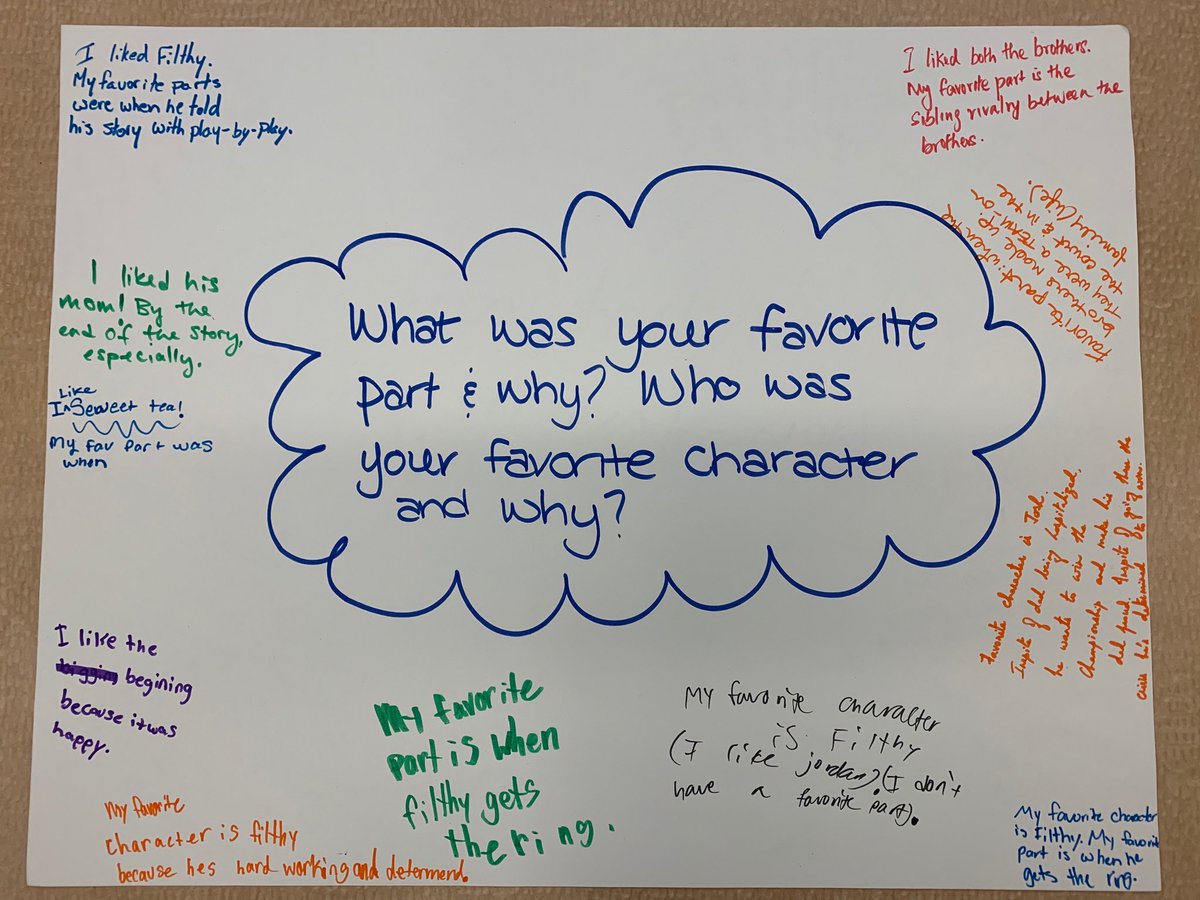 I liked Filthy.
My favorite parts
were when he told
his story with play-by-play.
I liked both the brothers.
My favorite part is the
sibling rivalry between the
brothers.
Favorite part: when the
brothers made up.
They were a TEAM - on
the court & in the
family (life).
I liked his
mom! By the
end of the story,
especially.
What was your favorite
part & why? Who was
your favorite character
and why?
Like
I Seweet tea!
My fav part was
when
Favorite character is Josh.
Inspite of dad being hospitalized,
he wants to win the
Championship and make his
dad proud. Inspite of going thru the
crisis he's determined to
I like the
begining
because it was
happy.
My favorite
part is when
filthy gets
the ring.
My favorite character
is Filthy
(I like jordan) (I don't
have a favorite part).
My favorite
character is filthy
because hes hard working and determend.
My favorite character
is Filthy. My favorite
part is when he
gets the ring.